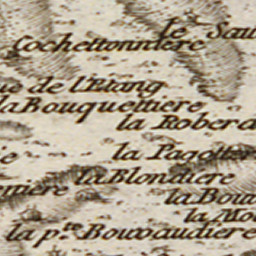 le Sau
Cochettonniere
ue de l'Etang
la Bouquettiere
la Robera
la Pagotter
la Blondiere
ettiere
la Bou
la Mo
la p.te Bouvaudiere